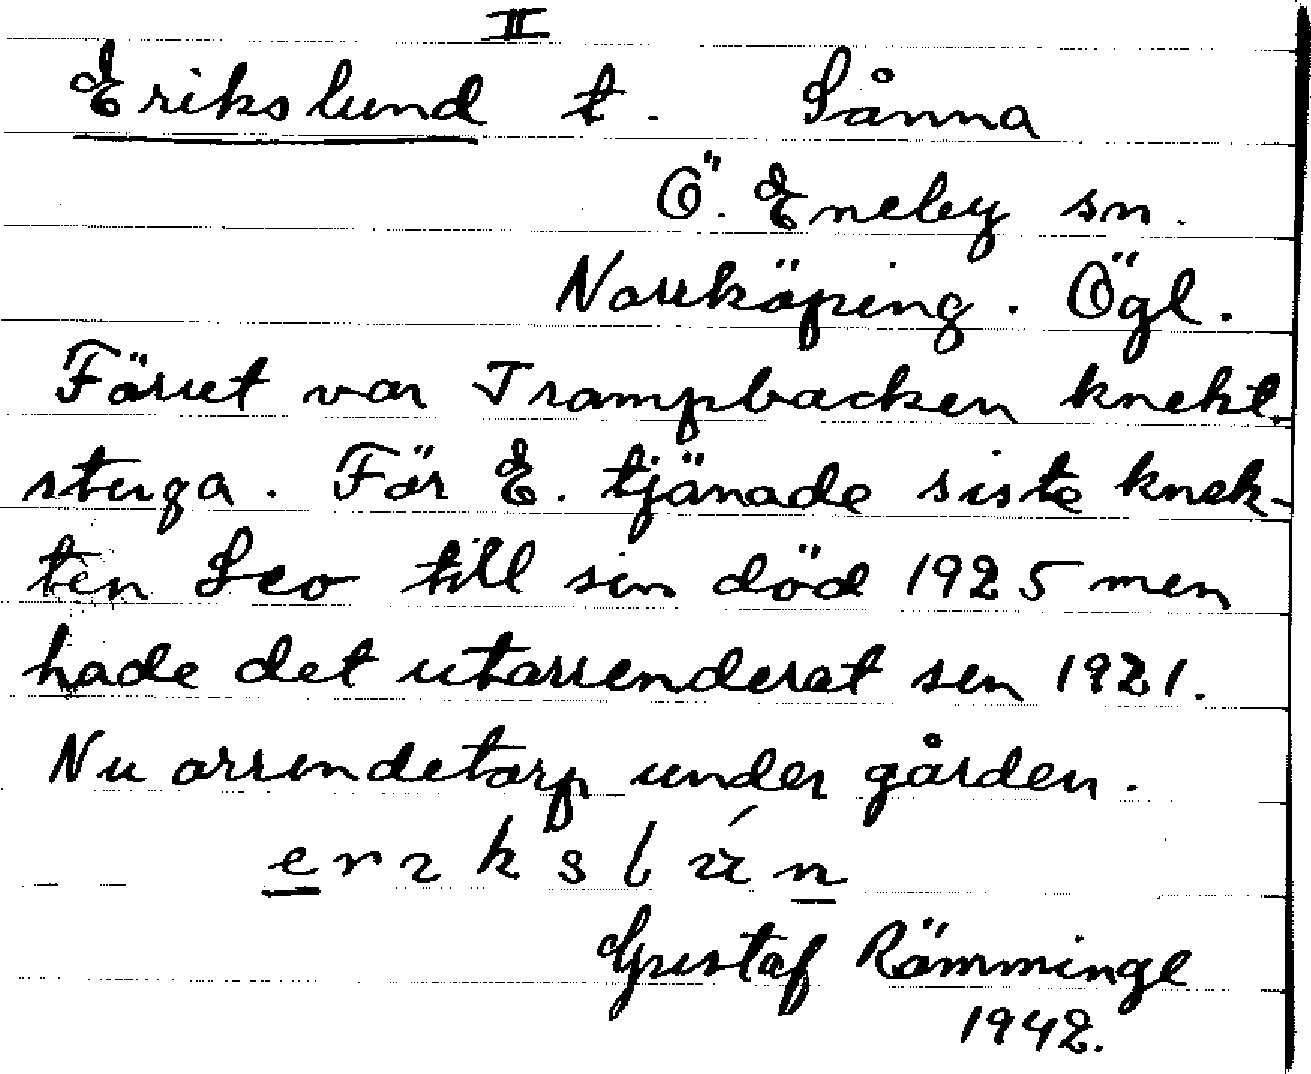 II
Erikslund t. Sånna
Ö. Eneby sn.
Norrköping. Ögl.
Förret var Trampbacken knekt
stuga. För E. tjänade siste knek-
ten Leo till sin död 1925 men
hade det utarrenderat sen 1921.
Nu arrendetorp under gården.
Gustaf Römminge
1942.